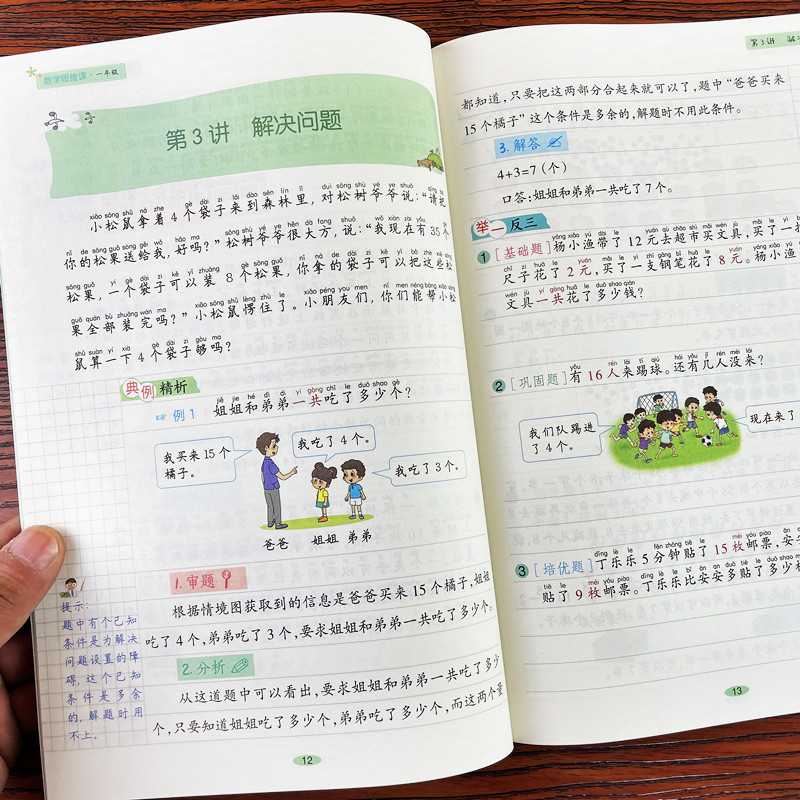 数学思维课·一年级
第3讲 解决问题
xiǎo sōng shǔ ná zhe gè dài zi lái dào sēn lín lǐ duì sōng shù yé ye shuō qǐng bǎ
小松鼠拿着4个袋子来到森林里，对松树爷爷说：“请把
nǐ de sōng guǒ sòng gěi wǒ hǎo ma sōng shù yé ye hěn dà fang shuō wǒ xiàn zài yǒu gè
你的松果送给我，好吗？”松树爷爷很大方，说：“我现在有35个
sōng guǒ yí gè dài zi kě yǐ zhuāng gè sōng guǒ nǐ ná de dài zi kě yǐ bǎ zhè xiē sōng
松果，一个袋子可以装8个松果，你拿的袋子可以把这些松
guǒ quán bù zhuāng wán ma xiǎo sōng shǔ lèng zhù le xiǎo péng you men nǐ men néng bāng xiǎo sōng
果全部装完吗？”小松鼠愣住了。小朋友们，你们能帮小松
shǔ suàn yí xià gè dài zi gòu ma
鼠算一下4个袋子够吗？
典例精析
jiě jie hé dì di yí gòng chī le duō shao gè
例1 姐姐和弟弟一共吃了多少个？
我买来15个
橘子。
我吃了4个。
我吃了3个。
爸爸 姐姐 弟弟
1.审题
根据情境图获取到的信息是爸爸买来15个橘子，姐姐
吃了4个，弟弟吃了3个，要求姐姐和弟弟一共吃了多少个。
2.分析
从这道题中可以看出，要求姐姐和弟弟一共吃了多少
个，只要知道姐姐吃了多少个，弟弟吃了多少个，而这两个量
提示：
题中有个已知
条件是为解决
问题设置的障
碍，这个已知
条件是多余
的，解题时用
不上。
12
第3讲 解
都知道，只要把这两部分合起来就可以了，题中“爸爸买来
15个橘子”这个条件是多余的，解题时不用此条件。
3.解答
4+3=7（个）
口答：姐姐和弟弟一共吃了7个。
举一反三
yáng xiǎo yú dài le yuán qù chāo shì mǎi wén jù mǎi le yì
1 [基础题]杨小渔带了12元去超市买文具，买了一
chǐ zi huā le yuán mǎi le yì zhī gāng bǐ huā le yuán yáng xiǎo yú
尺子花了2元，买了一支钢笔花了8元。杨小渔
wén jù yí gòng huā le duō shao qián
文具一共花了多少钱？
yǒu rén lái tī qiú hái yǒu jǐ rén méi lái
2 [巩固题]有16人来踢球。还有几人没来？
我们队踢进
了4个。
现在来了
dīng lè le fēn zhōng tiē le méi yóu piào ān
3 [培优题]丁乐乐5分钟贴了15枚邮票，安
tiē le méi yóu piào dīng lè le bǐ ān an duō tiē le duō shao
贴了9枚邮票。丁乐乐比安安多贴了多少
13